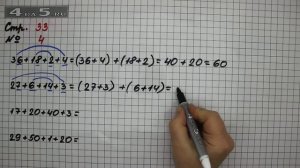 4BP5.RU
Стр. 33
№ 4
36+18+2+4=(36+4)+(18+2)=40+20=60
27+6+14+3=(27+3)+(6+14)=
17+20+40+3=
29+50+1+20=